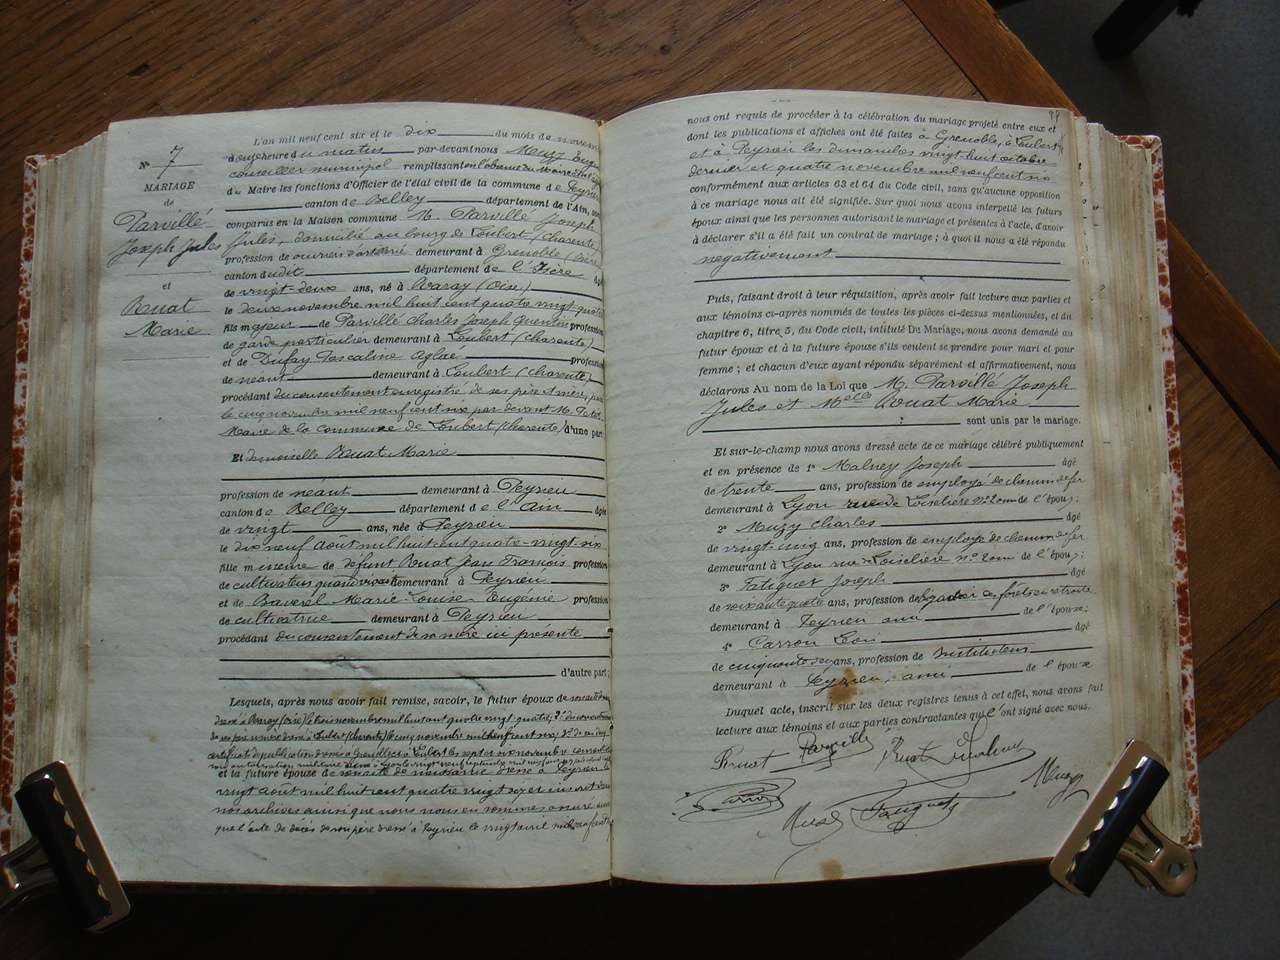 L'an mil neuf cent six et le dix du mois de novem
N° 7
MARIAGE
de
Parvillé
Joseph Jules
et
Ruat
Marie
heure du matin par-devant nous Muzy
conseiller municipal remplissant en l'absence du Maire
du Maire les fonctions d'Officier de l'état civil de la commune de Peyrieu
canton de Belley département de l'Ain, sont
comparus en la Maison commune M. Parvillé Joseph
Jules, domicilié au bourg de Loubert (Charente)
profession de ouvrier d'artillerie demeurant à Grenoble (Isère)
canton dudit département de l'Isère âgé
de vingt-deux ans, né à Waray (Oise)
le deux novembre mil huit cent quatre vingt quatre
fils majeur de Parvillé Charles Joseph Quentin profession
de garde particulier demeurant à Loubert (Charente)
et de Dufay Pascaline Aglaé profession
de néant demeurant à Loubert (Charente)
procédant du consentement enregistré de ses père et mère,
le cinq novembre mil neuf cent six par devant M.
Maire de la commune de Loubert (Charente) d'une part;
Et demoiselle Ruat Marie
profession de néant demeurant à Peyrieu
canton de Belley département de l'Ain âgée
de vingt ans, née à Peyrieu
le dix neuf août mil huit cent quatre-vingt-six
fille mineure de défunt Ruat Jean François profession
de cultivateur quand vivait demeurant à Peyrieu
et de Baverel Marie-Louise-Eugénie profession
de cultivatrice demeurant à Peyrieu
procédant du consentement de sa mère ici présente
d'autre part;
Lesquels, après nous avoir fait remise, savoir, le futur époux de
et la future épouse de son acte de naissance dressé à Peyrieu le
vingt août mil huit cent quatre vingt six et inscrit dans
nos archives ainsi que nous nous en sommes assuré ainsi
que l'acte de décès de son père dressé à Peyrieu le vingt avril mil neuf cent
99
nous ont requis de procéder à la célébration du mariage projeté entre eux et
dont les publications et affiches ont été faites à Grenoble, à Loubert,
et à Peyrieu les dimanches vingt huit octobre
dernier et quatre novembre mil neuf cent six
conformément aux articles 63 et 64 du Code civil, sans qu'aucune opposition
à ce mariage nous ait été signifiée. Sur quoi nous avons interpellé les futurs
époux ainsi que les personnes autorisant le mariage et présentes à l'acte, d'avoir
à déclarer s'il a été fait un contrat de mariage; à quoi il nous a été répondu
négativement
Puis, faisant droit à leur réquisition, après avoir fait lecture aux parties et
aux témoins ci-après nommés de toutes les pièces ci-dessus mentionnées, et du
chapitre 6, titre 5, du Code civil, intitulé Du Mariage, nous avons demandé au
futur époux et à la future épouse s'ils veulent se prendre pour mari et pour
femme; et chacun d'eux ayant répondu séparément et affirmativement, nous
déclarons Au nom de la Loi que M. Parvillé Joseph
Jules et Melle Ruat Marie
sont unis par le mariage.
Et sur-le-champ nous avons dressé acte de ce mariage célébré publiquement
et en présence de 1° Malney Joseph âgé
de trente ans, profession de employé de chemin de fer
demeurant à Lyon rue de Loiselière n° 22 ami de l'époux;
2° Muzy Charles âgé
de vingt-cinq ans, profession de employé de chemin de fer
demeurant à Lyon rue de Loiselière n° ami de l'époux;
3° Fatiguet Joseph âgé
de soixante quatre ans, profession de brigadier de forêts en retraite
demeurant à Peyrieu ami de l'épouse;
4° Carron Léon âgé
de cinquante ans, profession de instituteur
demeurant à Peyrieu, ami de l'épouse
Duquel acte, inscrit sur les deux registres tenus à cet effet, nous avons fait
lecture aux témoins et aux parties contractantes qui l'ont signé avec nous.
Ruat Parvillé Ruat
Carron Fatiguet Muzy